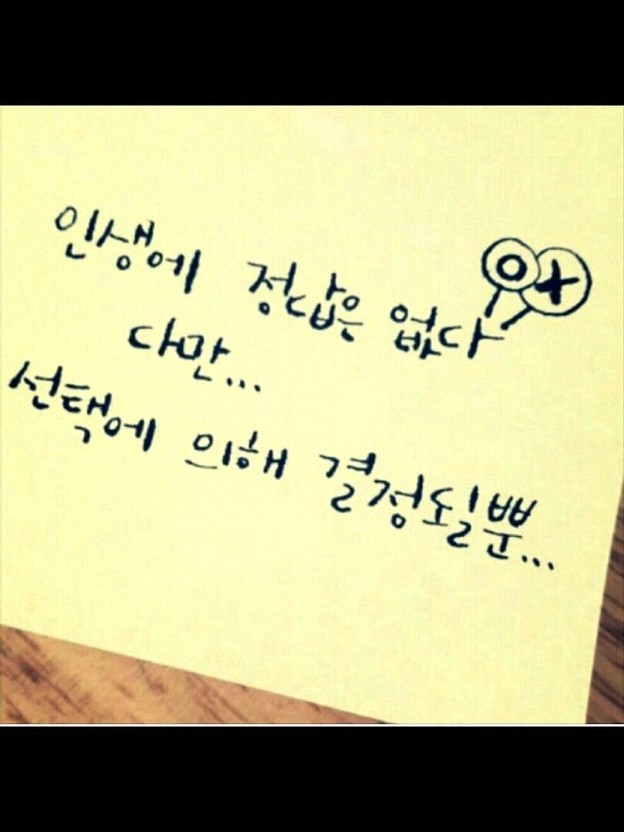 인생에 정답은 없다
다만...
선택에 의해 결정될뿐...